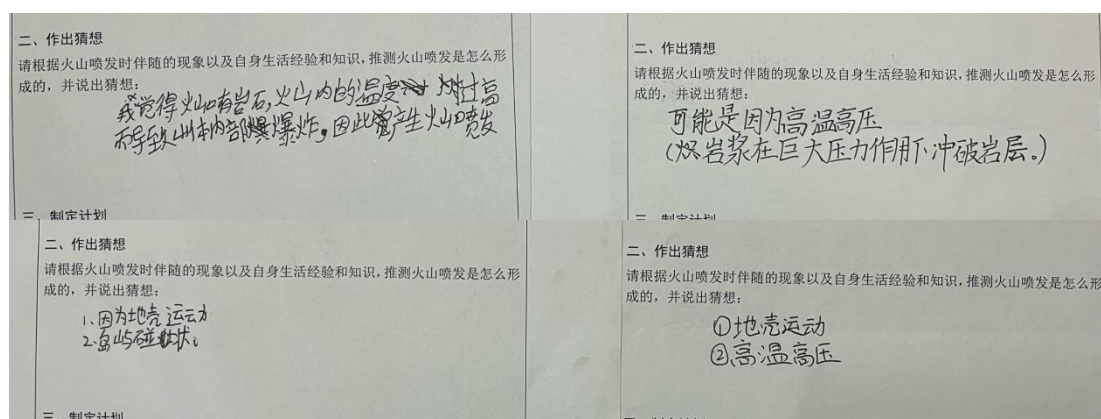 二、作出猜想
请根据火山喷发时伴随的现象以及自身生活经验和知识,推测火山喷发是怎么形
成的,并说出猜想:
我觉得火山内有岩石,火山内的温度 过高
而导致山体内部爆炸。因此产生火山喷发
三、制定计划
二、作出猜想
请根据火山喷发时伴随的现象以及自身生活经验和知识,推测火山喷发是怎么形
成的,并说出猜想:
可能是因为高温高压
(岩浆在巨大压力作用下冲破岩层。)
三、制定计划
二、作出猜想
请根据火山喷发时伴随的现象以及自身生活经验和知识,推测火山喷发是怎么形
成的,并说出猜想:
1、因为地壳运动
2、岛屿碰状。
三、制定计划
二、作出猜想
请根据火山喷发时伴随的现象以及自身生活经验和知识,推测火山喷发是怎么形
成的,并说出猜想:
①地壳运动
②高温高压